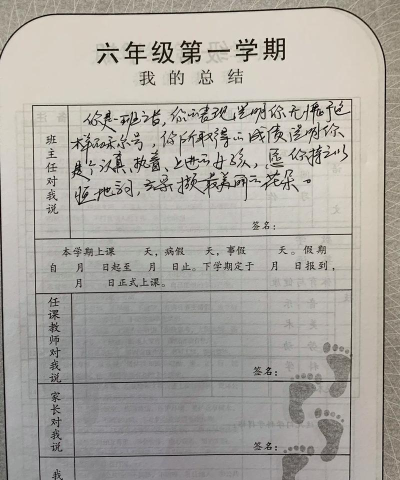 六年级第一学期
我的总结
班主任对我说
你是一班之长，你的表现说明你无愧于这
样的称号，你所取得的成绩说明你
是个认真、执着、上进的女孩，愿你持之以
恒地
最美的花朵。
签名：
本学期上课 天，病假 天，事假 天。假期
自 月 日起至 月 日止。下学期定于 月 日报到，
月 日正式上课。
任课教师对我说
签名：
家长对我说
签名：
我